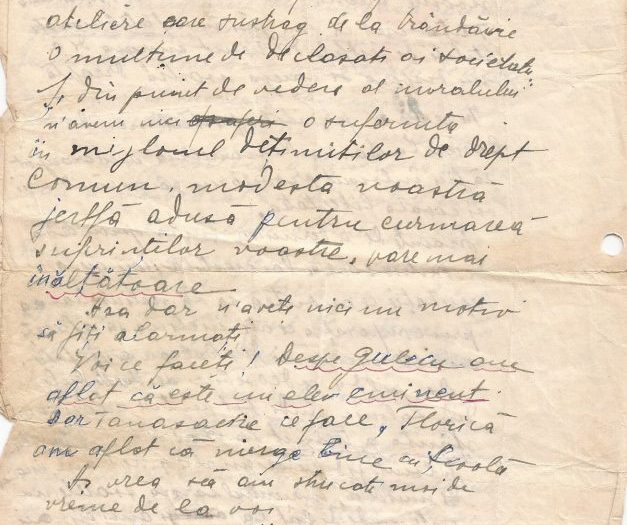 ateliere care sustrag de la trândăvie
o mulțime de declasați ai societății
Și din punct de vedere al moralului
n'avem nici o suferință
în mijlocul deținuților de drept
comun, modesta voastră
jertfă adusă pentru curmarea
suferințelor voastre, pare mai
înălțătoare
Așa dar n'aveți nici un motiv
să fiți alarmați
Voi ce faceți! Despe Guliciu am
aflat că este un elev eminent.
Dar Tanasache ce face, Florică
am aflat că merge bine cu școala
Aș vrea să am știri cât mai de
vreme de la voi